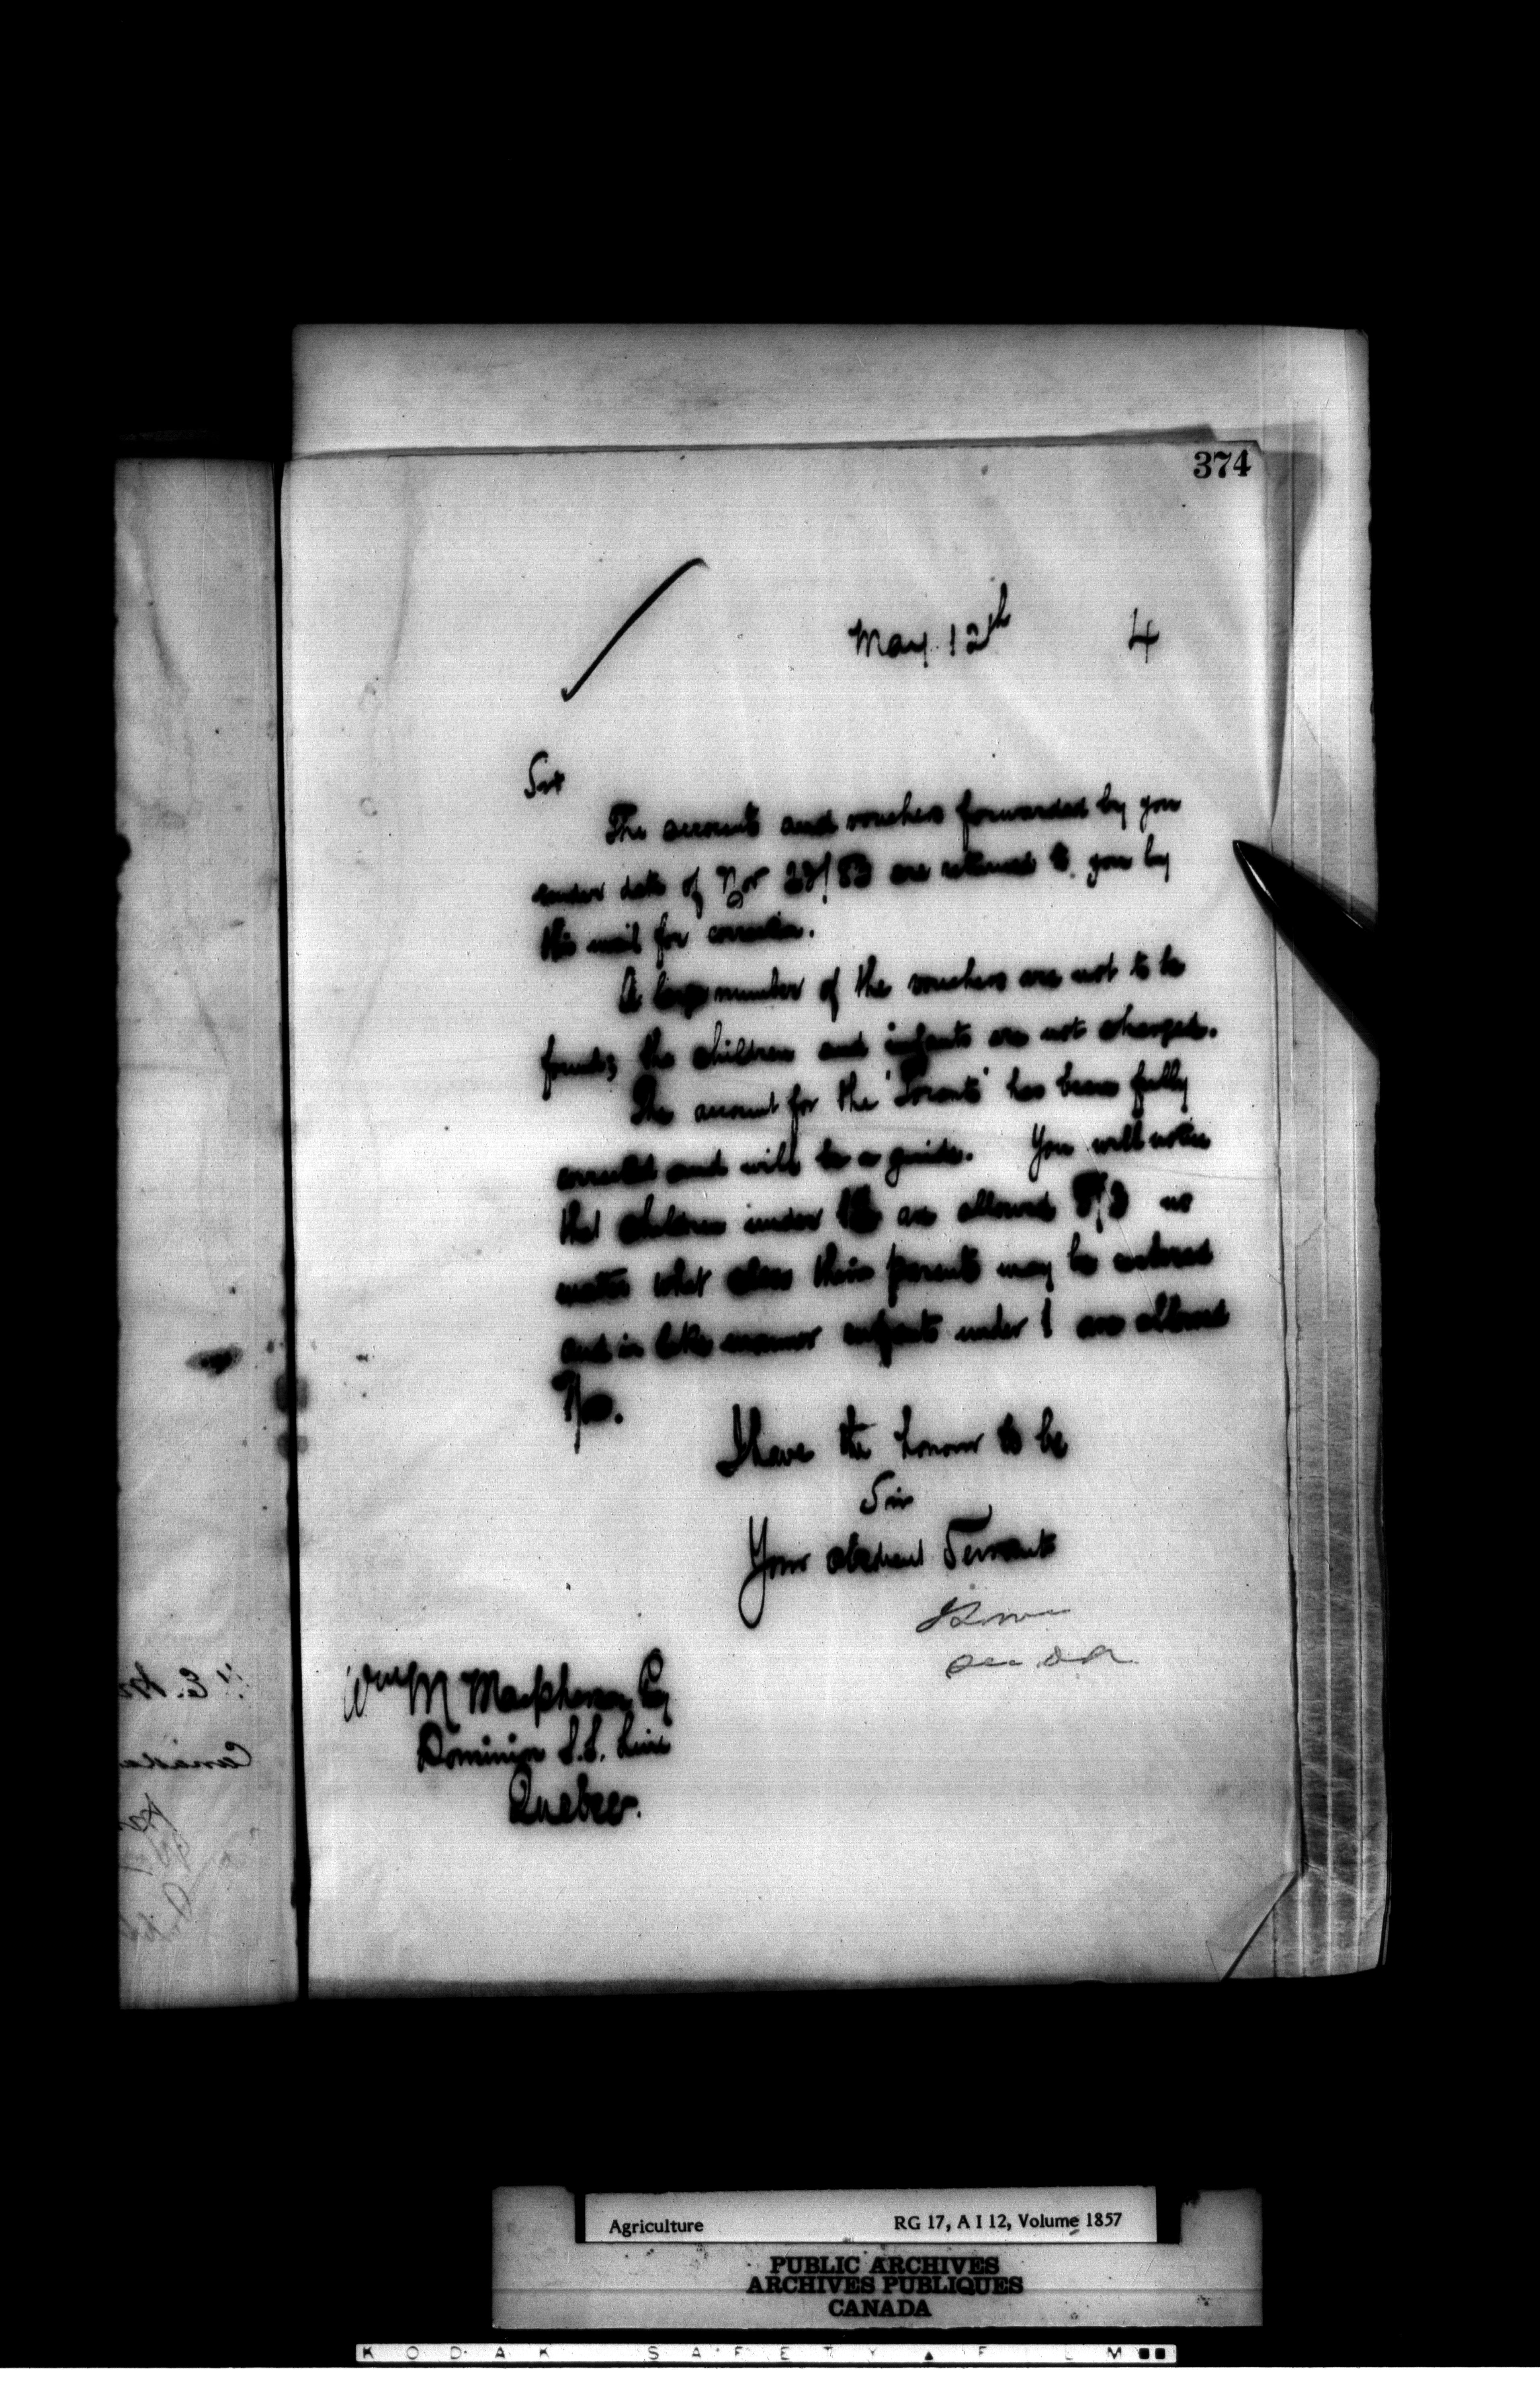 374
May 12th 4
Sir
The accounts and vouchers forwarded by you
under date of Nov 23/83 are returned to you by
this mail for correction.
A large number of the vouchers are not to be
found; the children and infants are not charged.
The account for the "Toronto" has been fully
corrected and will be a guide. You will notice
that children under 12 are allowed no
matter what class their parents may be entered
and in like manner infants under 1 are allowed
I have the honour to be
Sir
Your obedient Servant
Wm M Macpherson Esq
Dominion S.S. Line
Quebec.
Canada
Agriculture RG 17, A I 12, Volume 1857
PUBLIC ARCHIVES
ARCHIVES PUBLIQUES
CANADA
KODAK SAFETY ▲ FILM